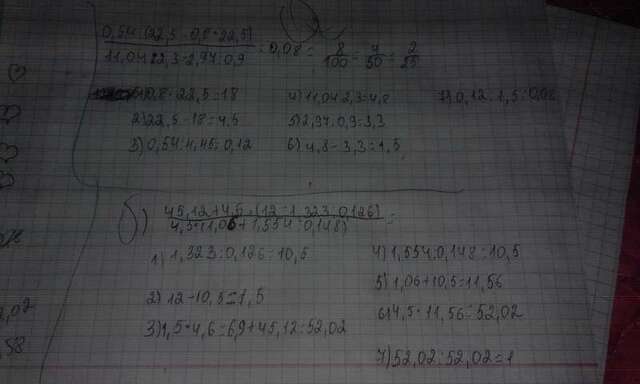 0,54:(22,5-0,8*22,5)
11,04:2,3-2,97:0,9
=0,08= 8/100 = 4/50 = 2/25
0,8*22,5=18
2) 22,5-18=4,5
3) 0,54:4,45=0,12
4) 11,04:2,3=4,8
5) 2,97:0,9=3,3
6) 4,8-3,3=1,5
7) 0,12:1,5=0,08
б)
45,12+4,6*(12-1,323:0,126)
4,5*(1,06+1,554:0,148) =
1) 1,323:0,126=10,5
2) 12-10,5=1,5
3) 1,5*4,6=6,9+45,12=52,02
4) 1,554:0,148=10,5
5) 1,06+10,5=11,56
6) 4,5*11,56=52,02
7) 52,02:52,02=1
2,02
,58